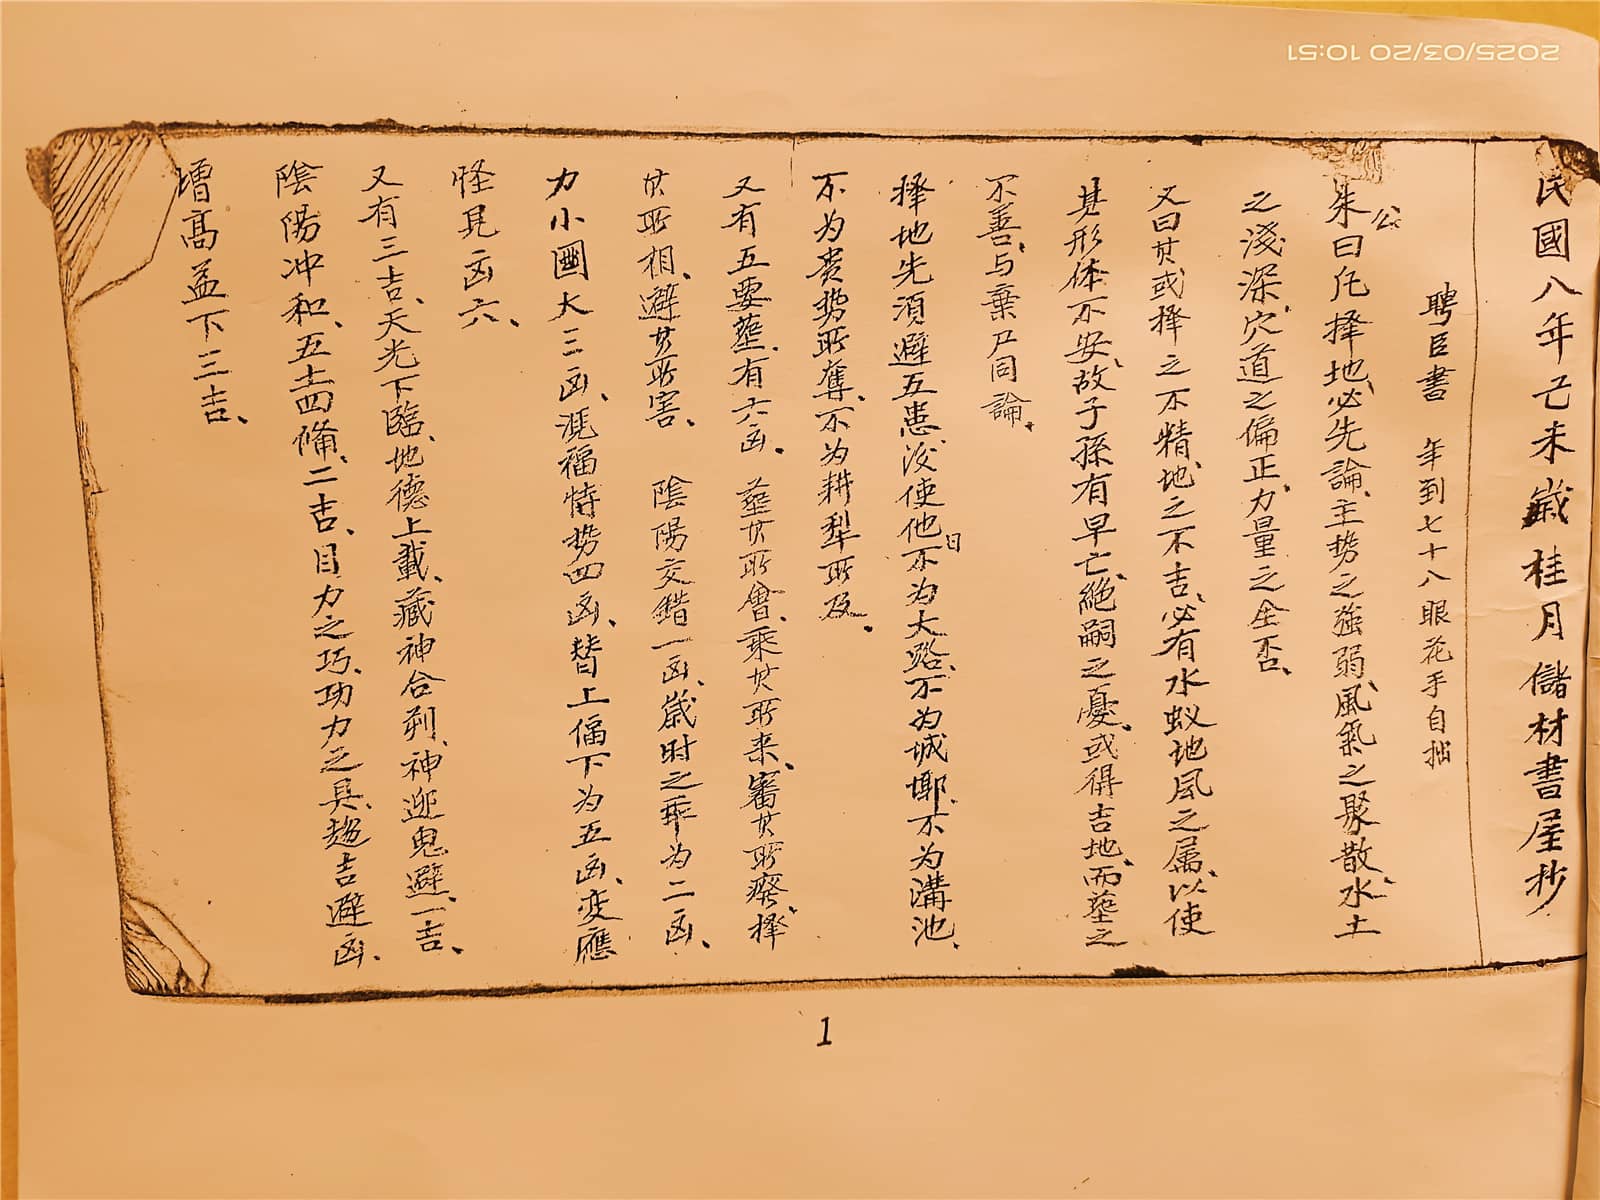 2025/03/20 10:51
民國八年己未歲桂月儲材書屋抄
聘臣書 年到七十八眼花手自拙
朱公曰凡擇地、必先論、主势之強弱、風氣之聚散、水土
之淺深、穴道之偏正、力量之全否、
又曰其或擇之不精、地之不吉、必有水蚁地风之属、以使
其形体不安、故子孫有早亡、絕嗣之憂、或得吉地、而塟之
不善、与棄尸同論、
擇地先須避五患、后使他日不为大路、不为城塚、不为溝池、
不为贵势所奪、不为耕犁所及、
又有五要塟、有六凶、塟其所會、乘其所来、審其所廢、擇
其所相、避其所害、 陰陽交錯一凶、歲时之乖为二凶、
力小圖大三凶、凭福恃势四凶、替上偪下为五凶、变應
怪見凶六、
又有三吉、天光下臨、地德上載、藏神合朔、神迎鬼避、一吉、
陰陽冲和、五土四備、二吉、目力之巧、功力之具、趨吉避凶、
增高益下三吉、
1